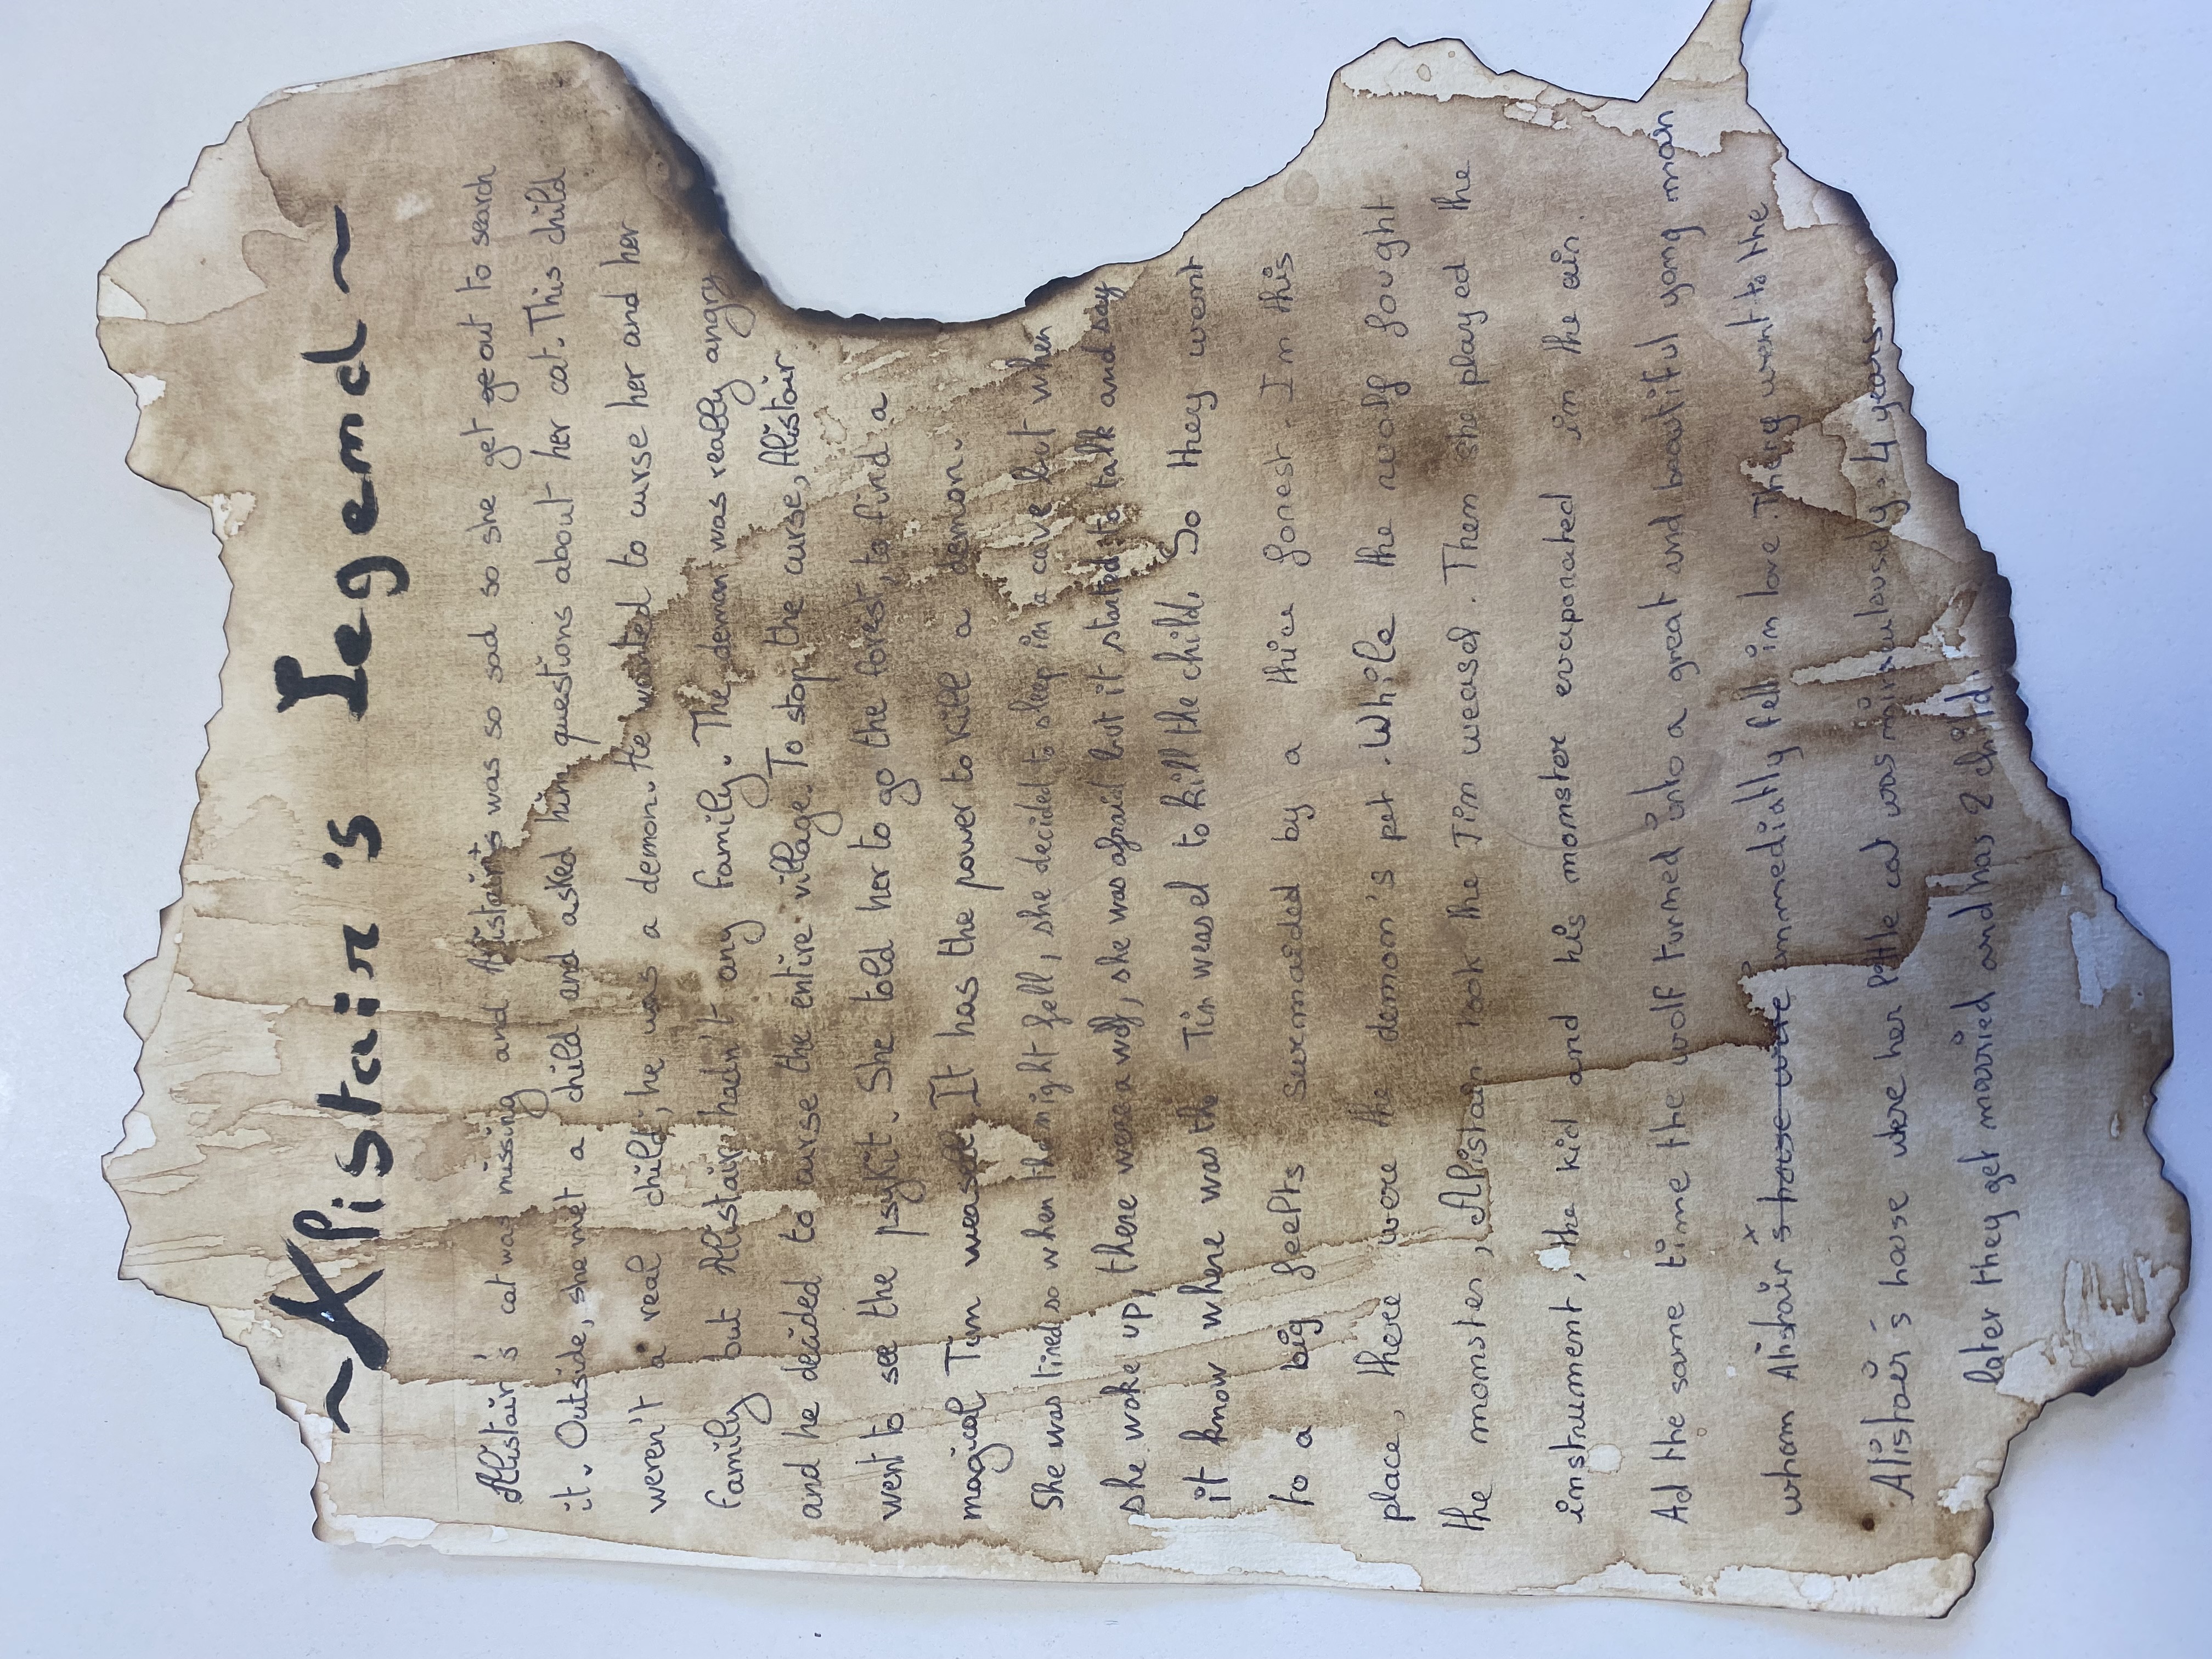 ~ Alistair's Legend ~
Alistair's cat was missing and Alistair was so sad so she get out to search
it. Outside, she met a child and asked him questions about her cat. This child
weren't a real child, he was a demon. He wanted to curse her and her
family but Alistair hadn't any family. The demon was really angry
and he decided to curse the entire village. To stop the curse, Alistair
went to see the psykit. She told her to go the forest, to find a
magical Tin weasel. It has the power to kill a demon.
She was tired so when the night fell, she decided to sleep in a cave but when
she woke up, there were a wolf, she was afraid but it started to talk and say
it know where was the Tin weasel to kill the child. So they went
to a big feelts surrmaided by a thice forest. In this
place, there were the demon's pet. While the wolf fought
the monster, Alistair took the Tin weasel. Then she played the
instrument, the kid and his monster evaporated in the air.
Ad the same time the wolf turned into a great and beautiful yong man
whom Alistair s house were immediatly fell in love. They went to the
Alistair's house were her little cat was miraculously. 4 years
later they get married and has 2 child.